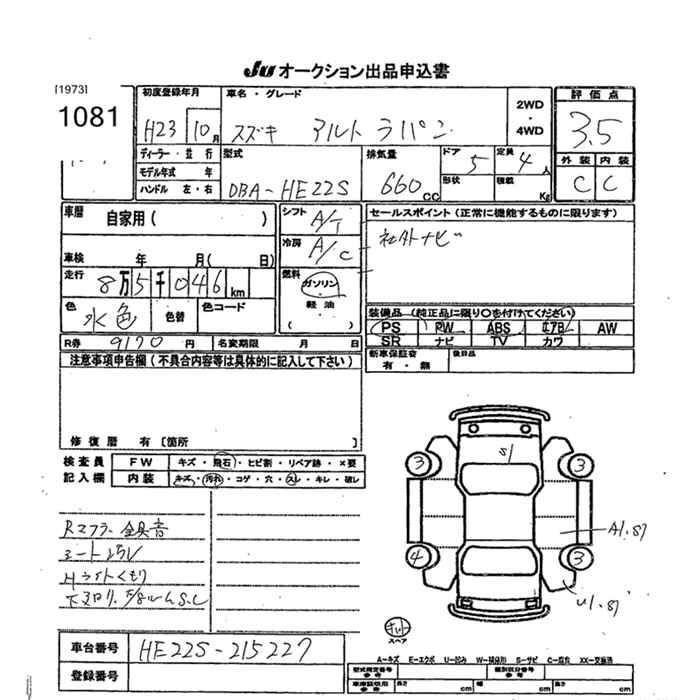 JU オークション出品申込書
[1973]
1081
初度登録年月
H23 10月
車名・グレード
スズキ アルト ラパン
2WD
・
4WD
評価点
3.5
外装 内装
C C
ディーラー・並行
モデル年式 年
ハンドル 左・右
型式
DBA-HE22S
排気量
660 CC
ドア 5
形状
定員 4 人
積載 Kg
車歴 自家用( )
車検 年 月( 日)
走行 8万5千046 km
色 水色 色替 色コード
R券 9170 円 名変期限 月 日
シフト A/T
冷房 A/C
燃料 ガソリン
・
軽油
( )
セールスポイント(正常に機能するものに限ります)
社外ナビ
装備品(純正品に限り○を付けてください)
PS PW ABS エアB AW
SR ナビ TV カワ
新車保証書 後日品
有・無
注意事項申告欄(不具合内容等は具体的に記入して下さい)
修復歴 有〔箇所 〕
検査員 FW キズ・飛石・ヒビ割・リペア跡・×要
記入欄 内装 キズ・汚れ・コゲ・穴・スレ・キレ・破レ
Rマフラー 金具音
Hライトくもり
S1
3 3
4 3
A1.87
U1.87
スペア
A-キズ E-エクボ U-凹み W-補修跡 S-サビ C-腐食 XX-交換済
車台番号 HE22S-215227
登録番号
型式指定番号
参考
類別区分番号
参考
車庫証明用
参考
長さ cm 幅 cm 高さ cm